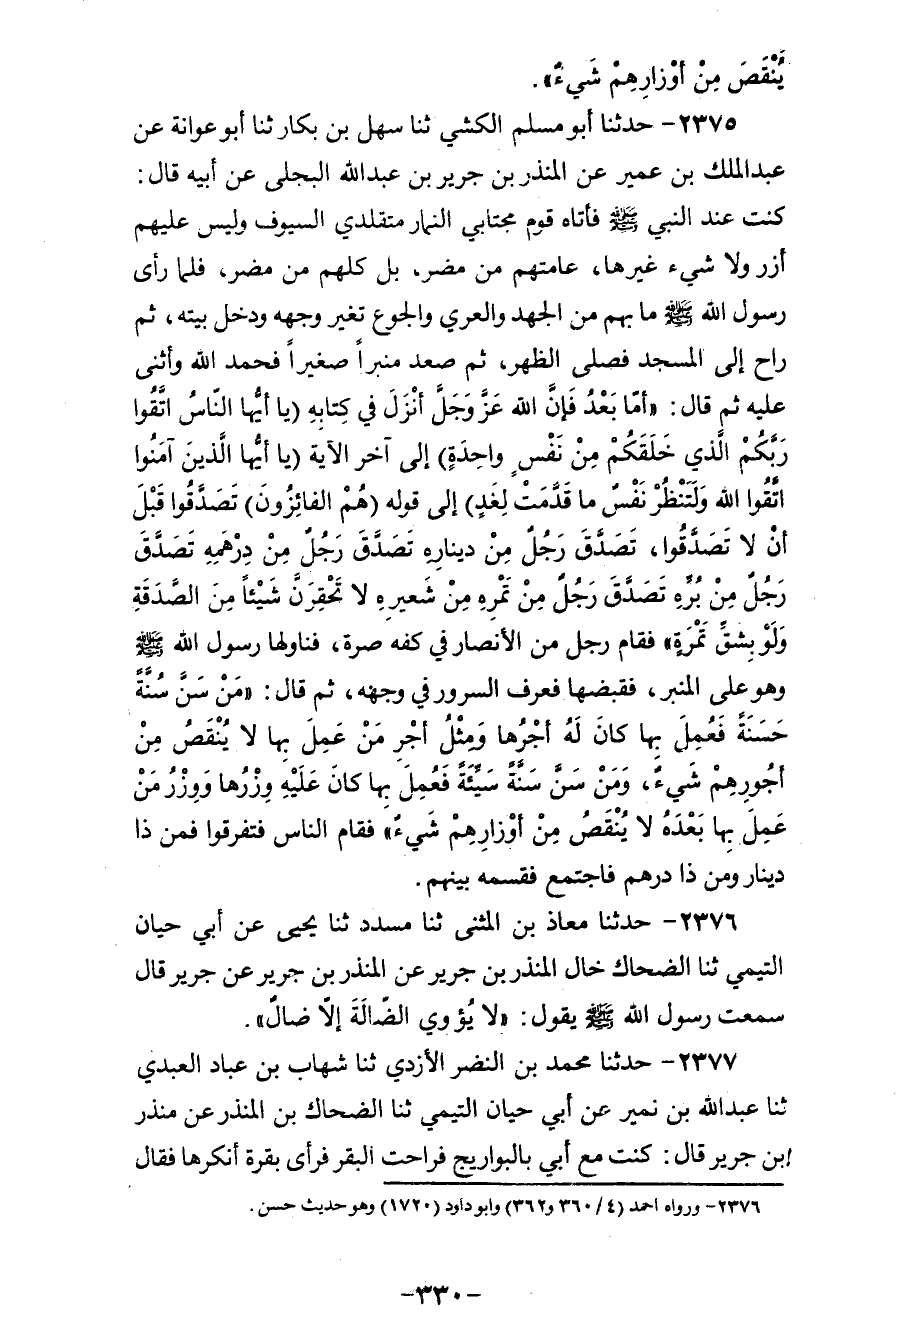 يُنْقَصَ مِنْ أوْزارِهِمْ شَيءٌ».
٢٣٧٥- حدثنا أبو مسلم الكشي ثنا سهل بن بكار ثنا أبو عوانة عن
عبدالملك بن عمير عن المنذر بن جرير بن عبدالله البجلى عن أبيه قال:
كنت عند النبي ﷺ فأتاه قوم مجتابي النمار متقلدي السيوف وليس عليهم
أزر ولا شيء غيرها، عامتهم من مضر، بل كلهم من مضر، فلما رأى
رسول الله ﷺ ما بهم من الجهد والعري والجوع تغير وجهه ودخل بيته، ثم
راح إلى المسجد فصلى الظهر، ثم صعد منبراً صغيراً فحمد الله وأثنى
عليه ثم قال: «أمّا بَعْدُ فَإنَّ الله عَزَّ وَجَلَّ أنْزَلَ في كِتابِهِ (يا أيُّها النّاسُ اتَّقُوا
رَبَّكُمْ الَّذي خَلَقَكُمْ مِنْ نَفْسٍ واحِدَةٍ) إلى آخر الآية (يا أيُّها الَّذينَ آمَنُوا
اتَّقُوا الله وَلَتَنْظُرْ نَفْسٌ ما قَدَّمَتْ لِغَدٍ) إلى قوله (هُمْ الفائِزُونَ) تَصَدَّقُوا قَبْلَ
أنْ لا تَصَدَّقُوا، تَصَدَّقَ رَجُلٌ مِنْ دينارِهِ تَصَدَّقَ رَجُلٌ مِنْ دِرْهَمِهِ تَصَدَّقَ
رَجُلٌ مِنْ بُرِّهِ تَصَدَّقَ رَجُلٌ مِنْ تَمْرِهِ مِنْ شَعيرِهِ لا تَحْقِرَنَّ شَيْئاً مِنَ الصَّدَقَةِ
وَلَوْ بِشقِّ تَمْرَةٍ» فقام رجل من الأنصار في كفه صرة، فناولها رسول الله ﷺ
وهو على المنبر، فقبضها فعرف السرور في وجهه، ثم قال: «مَنْ سَنَّ سُنَّةً
حَسَنَةً فَعُمِلَ بِها كانَ لَهُ أجْرُها وَمِثْلُ أجْرِ مَنْ عَمِلَ بِها لا يُنْقَصُ مِنْ
أجُورِهِمْ شَيءٌ، وَمَنْ سَنَّ سَنَّةً سَيِّئَةً فَعُمِلَ بِها كانَ عَلَيْهِ وِزْرُها وَوِزْرُ مَنْ
عَمِلَ بِها بَعْدَهُ لا يُنْقَصُ مِنْ أوْزارِهِمْ شَيءٌ» فقام الناس فتفرقوا فمن ذا
دينار ومن ذا درهم فاجتمع فقسمه بينهم.
٢٣٧٦- حدثنا معاذ بن المثنى ثنا مسدد ثنا يحيى عن أبي حيان
التيمي ثنا الضحاك خال المنذر بن جرير عن المنذر بن جرير عن جرير قال
سمعت رسول الله ﷺ يقول: «لا يُؤوي الضّالَةَ إلّا ضالٌ».
٢٣٧٧- حدثنا محمد بن النضر الأزدي ثنا شهاب بن عباد العبدي
ثنا عبدالله بن نمير عن أبي حيان التيمي ثنا الضحاك بن المنذر عن منذر
ابن جرير قال: كنت مع أبي بالبوازيج فراحت البقر فرأى بقرة أنكرها فقال
٢٣٧٦- ورواه احمد (٤/ ٣٦٠ و٣٦٢) وابو داود (١٧٢٠) وهو حديث حسن.
-٣٣٠-